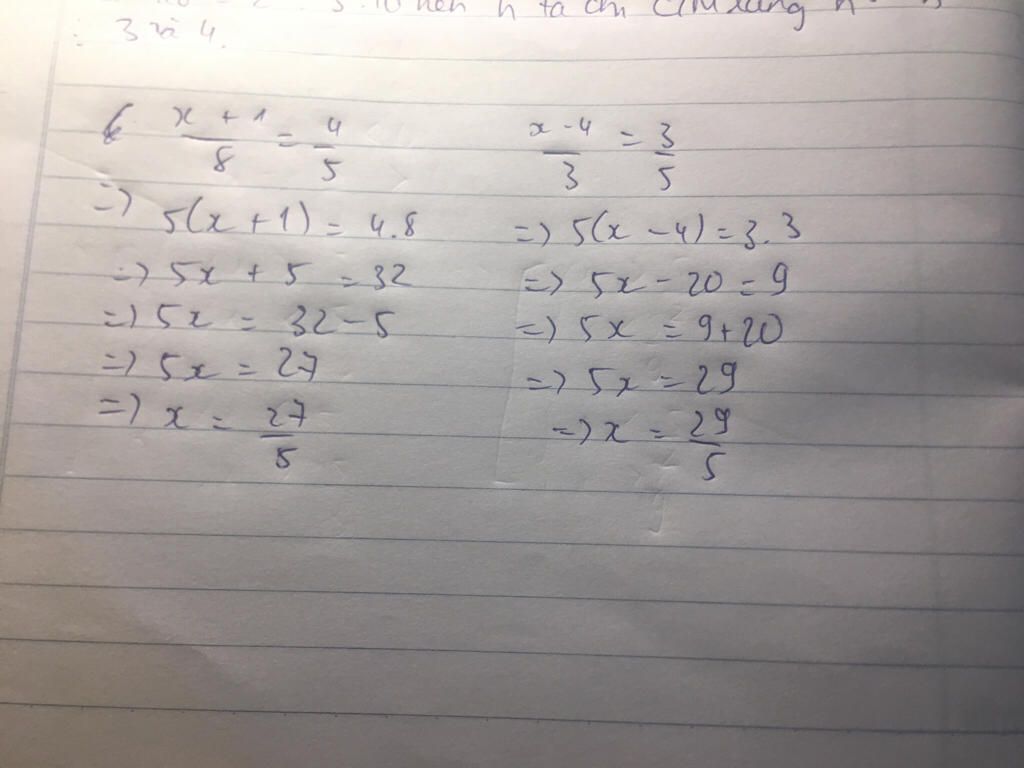 n ta chỉ
3 và 4.
x + 1 / 8 = 4 / 5
=> 5(x + 1) = 4.8
=> 5x + 5 = 32
=> 5x = 32 - 5
=> 5x = 27
=> x = 27 / 5
x - 4 / 3 = 3 / 5
=> 5(x - 4) = 3.3
=> 5x - 20 = 9
=> 5x = 9 + 20
=> 5x = 29
=> x = 29 / 5